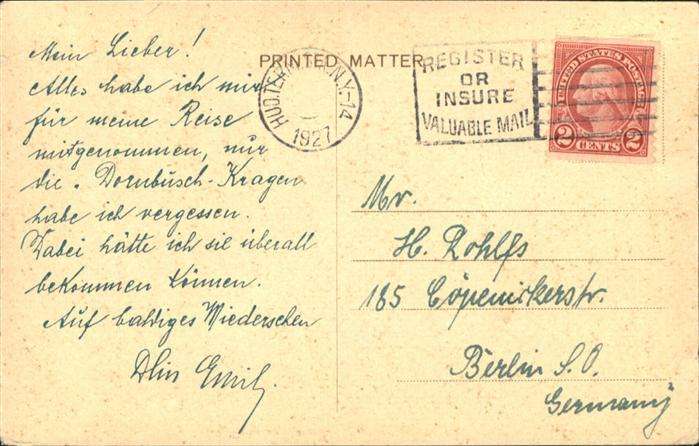 Mein Lieber!
Alles habe ich mir
für meine Reise
mitgenommen, nur
die „Dornbusch-Kragen
habe ich vergessen.
Dabei hätte ich sie überall
bekommen können.
Auf baldiges Wiedersehen
Dein Emil.
PRINTED MATTER
HUD.TER. N.Y.-14
1927
REGISTER
OR
INSURE
VALUABLE MAIL
UNITED STATES POSTAGE
2 CENTS 2
Mr.
H. Rohlfs
185 Cöpenickerstr.
Berlin S.O.
Germany